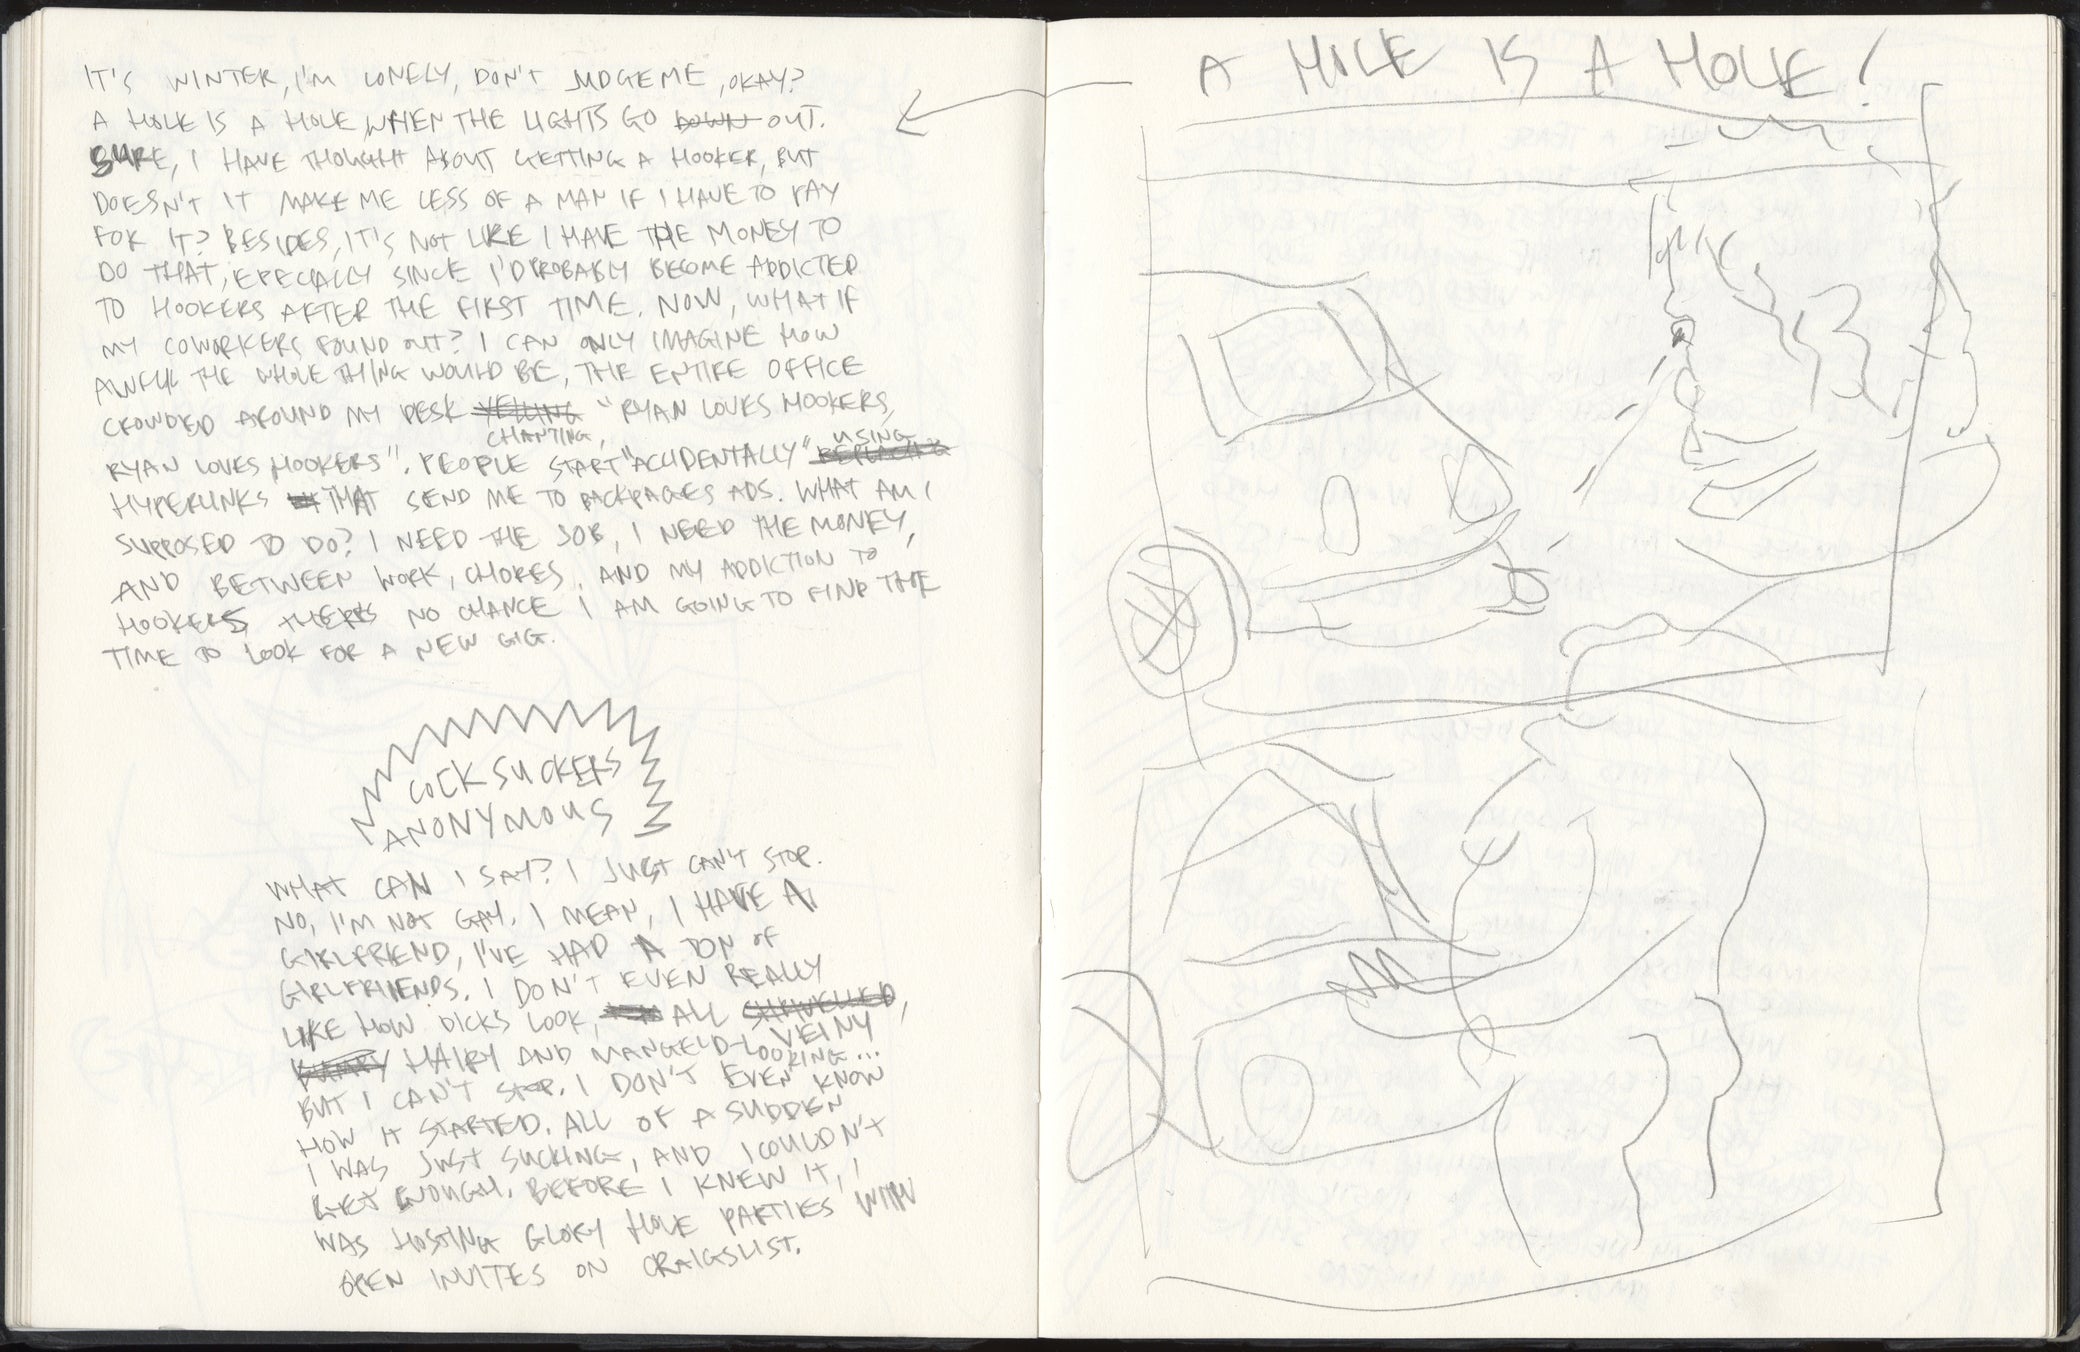 IT'S WINTER, I'M LONELY, DON'T JUDGE ME, OKAY?
A HOLE IS A HOLE WHEN THE LIGHTS GO DOWN OUT.
SURE, I HAVE THOUGHT ABOUT GETTING A HOOKER, BUT
DOESN'T IT MAKE ME LESS OF A MAN IF I HAVE TO PAY
FOR IT? BESIDES, IT'S NOT LIKE I HAVE THE MONEY TO
DO THAT, EPECIALLY SINCE I'D PROBABLY BECOME ADDICTED
TO HOOKERS AFTER THE FIRST TIME. NOW, WHAT IF
MY COWORKERS FOUND OUT? I CAN ONLY IMAGINE HOW
AWFUL THE WHOLE THING WOULD BE, THE ENTIRE OFFICE
CROWDED AROUND MY DESK YELLING "RYAN LOVES HOOKERS,
CHANTING, USING
RYAN LOVES HOOKERS". PEOPLE START "ACCIDENTALLY" REPLACING
HYPERLINKS THAT SEND ME TO BACKPAGES ADS. WHAT AM I
SUPPOSED TO DO? I NEED THE JOB, I NEED THE MONEY,
AND BETWEEN WORK, CHORES, AND MY ADDICTION TO
HOOKERS THERES NO CHANCE I AM GOING TO FIND THE
TIME TO LOOK FOR A NEW GIG.
COCK SUCKERS
ANONYMOUS
WHAT CAN I SAY? I JUST CAN'T STOP.
NO, I'M NOT GAY. I MEAN, I HAVE A
GIRLFRIEND, I'VE HAD A TON OF
GIRLFRIENDS. I DON'T EVEN REALLY
LIKE HOW DICKS LOOK, ALL SHRIVELLED,
VEINY
HAIRY AND MANGELD-LOOKING...
BUT I CAN'T STOP. I DON'T EVEN KNOW
HOW IT STARTED. ALL OF A SUDDEN
I WAS JUST SUCKING, AND I COULDN'T
GET ENOUGH. BEFORE I KNEW IT, I
WAS HOSTING GLORY HOLE PARTIES WITH
OPEN INVITES ON CRAIGSLIST.
A HOLE IS A HOLE!